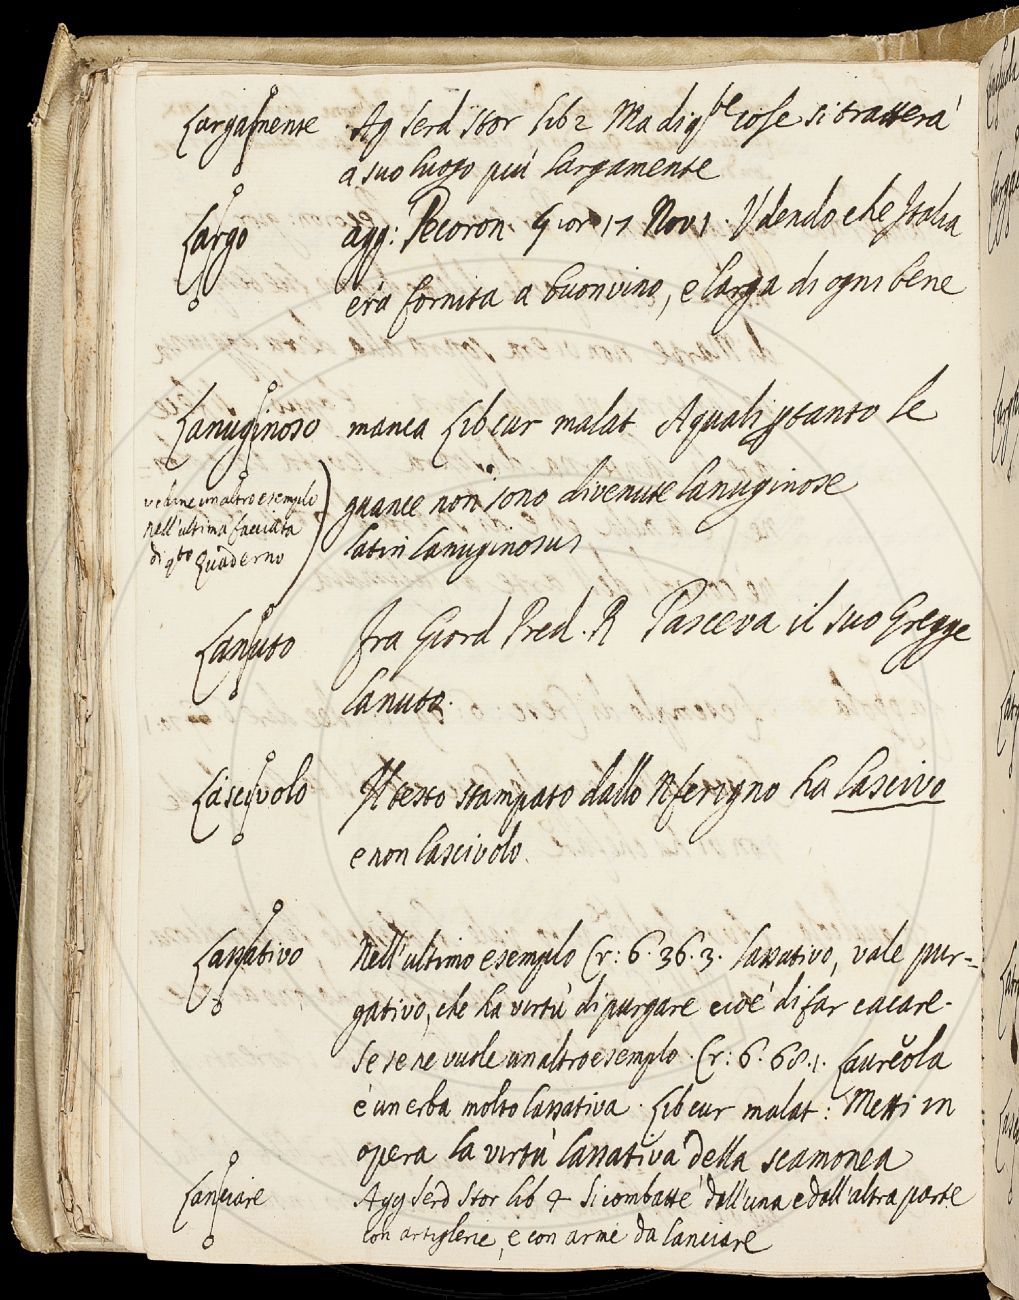 Largamente Ag Serd Stor Lib 2 Ma di qste cose si tratterà
a suo luogo più largamente
Largo agg: Pecoron Gior 17 Nov 1. Udendo che Italia
era fornita a buon vino, e larga di ogni bene
Lanuginoso manca Lib cur malat A quali ptanto le
guance non sono divenute lanuginose
latin lanuginosus
ve dine un altro esempio
nell'ultima facciata
di qto Quaderno
Lanuto Fra Giord Pred. R Pasceva il suo Gregge
lanuto.
Lascivolo Il testo stampato dallo Nferigno ha lascivo
e non lascivolo.
Lassativo Nell'ultimo esemplo Cr: 6. 36. 3. lassativo, vale pur=
gativo, che ha virtù di purgare cioè di far cacare.
Se se ne vuole un altro esemplo. Cr: 6. 68. 1. Laureola
è un erba molto lassativa. Lib cur malat: Metti in
opera la virtù lassativa della scamonea
Lanciare Agg Serd Stor Lib 4 Si combatte dall'una e dall'altra parte
con artiglerie, e con arme da lanciare